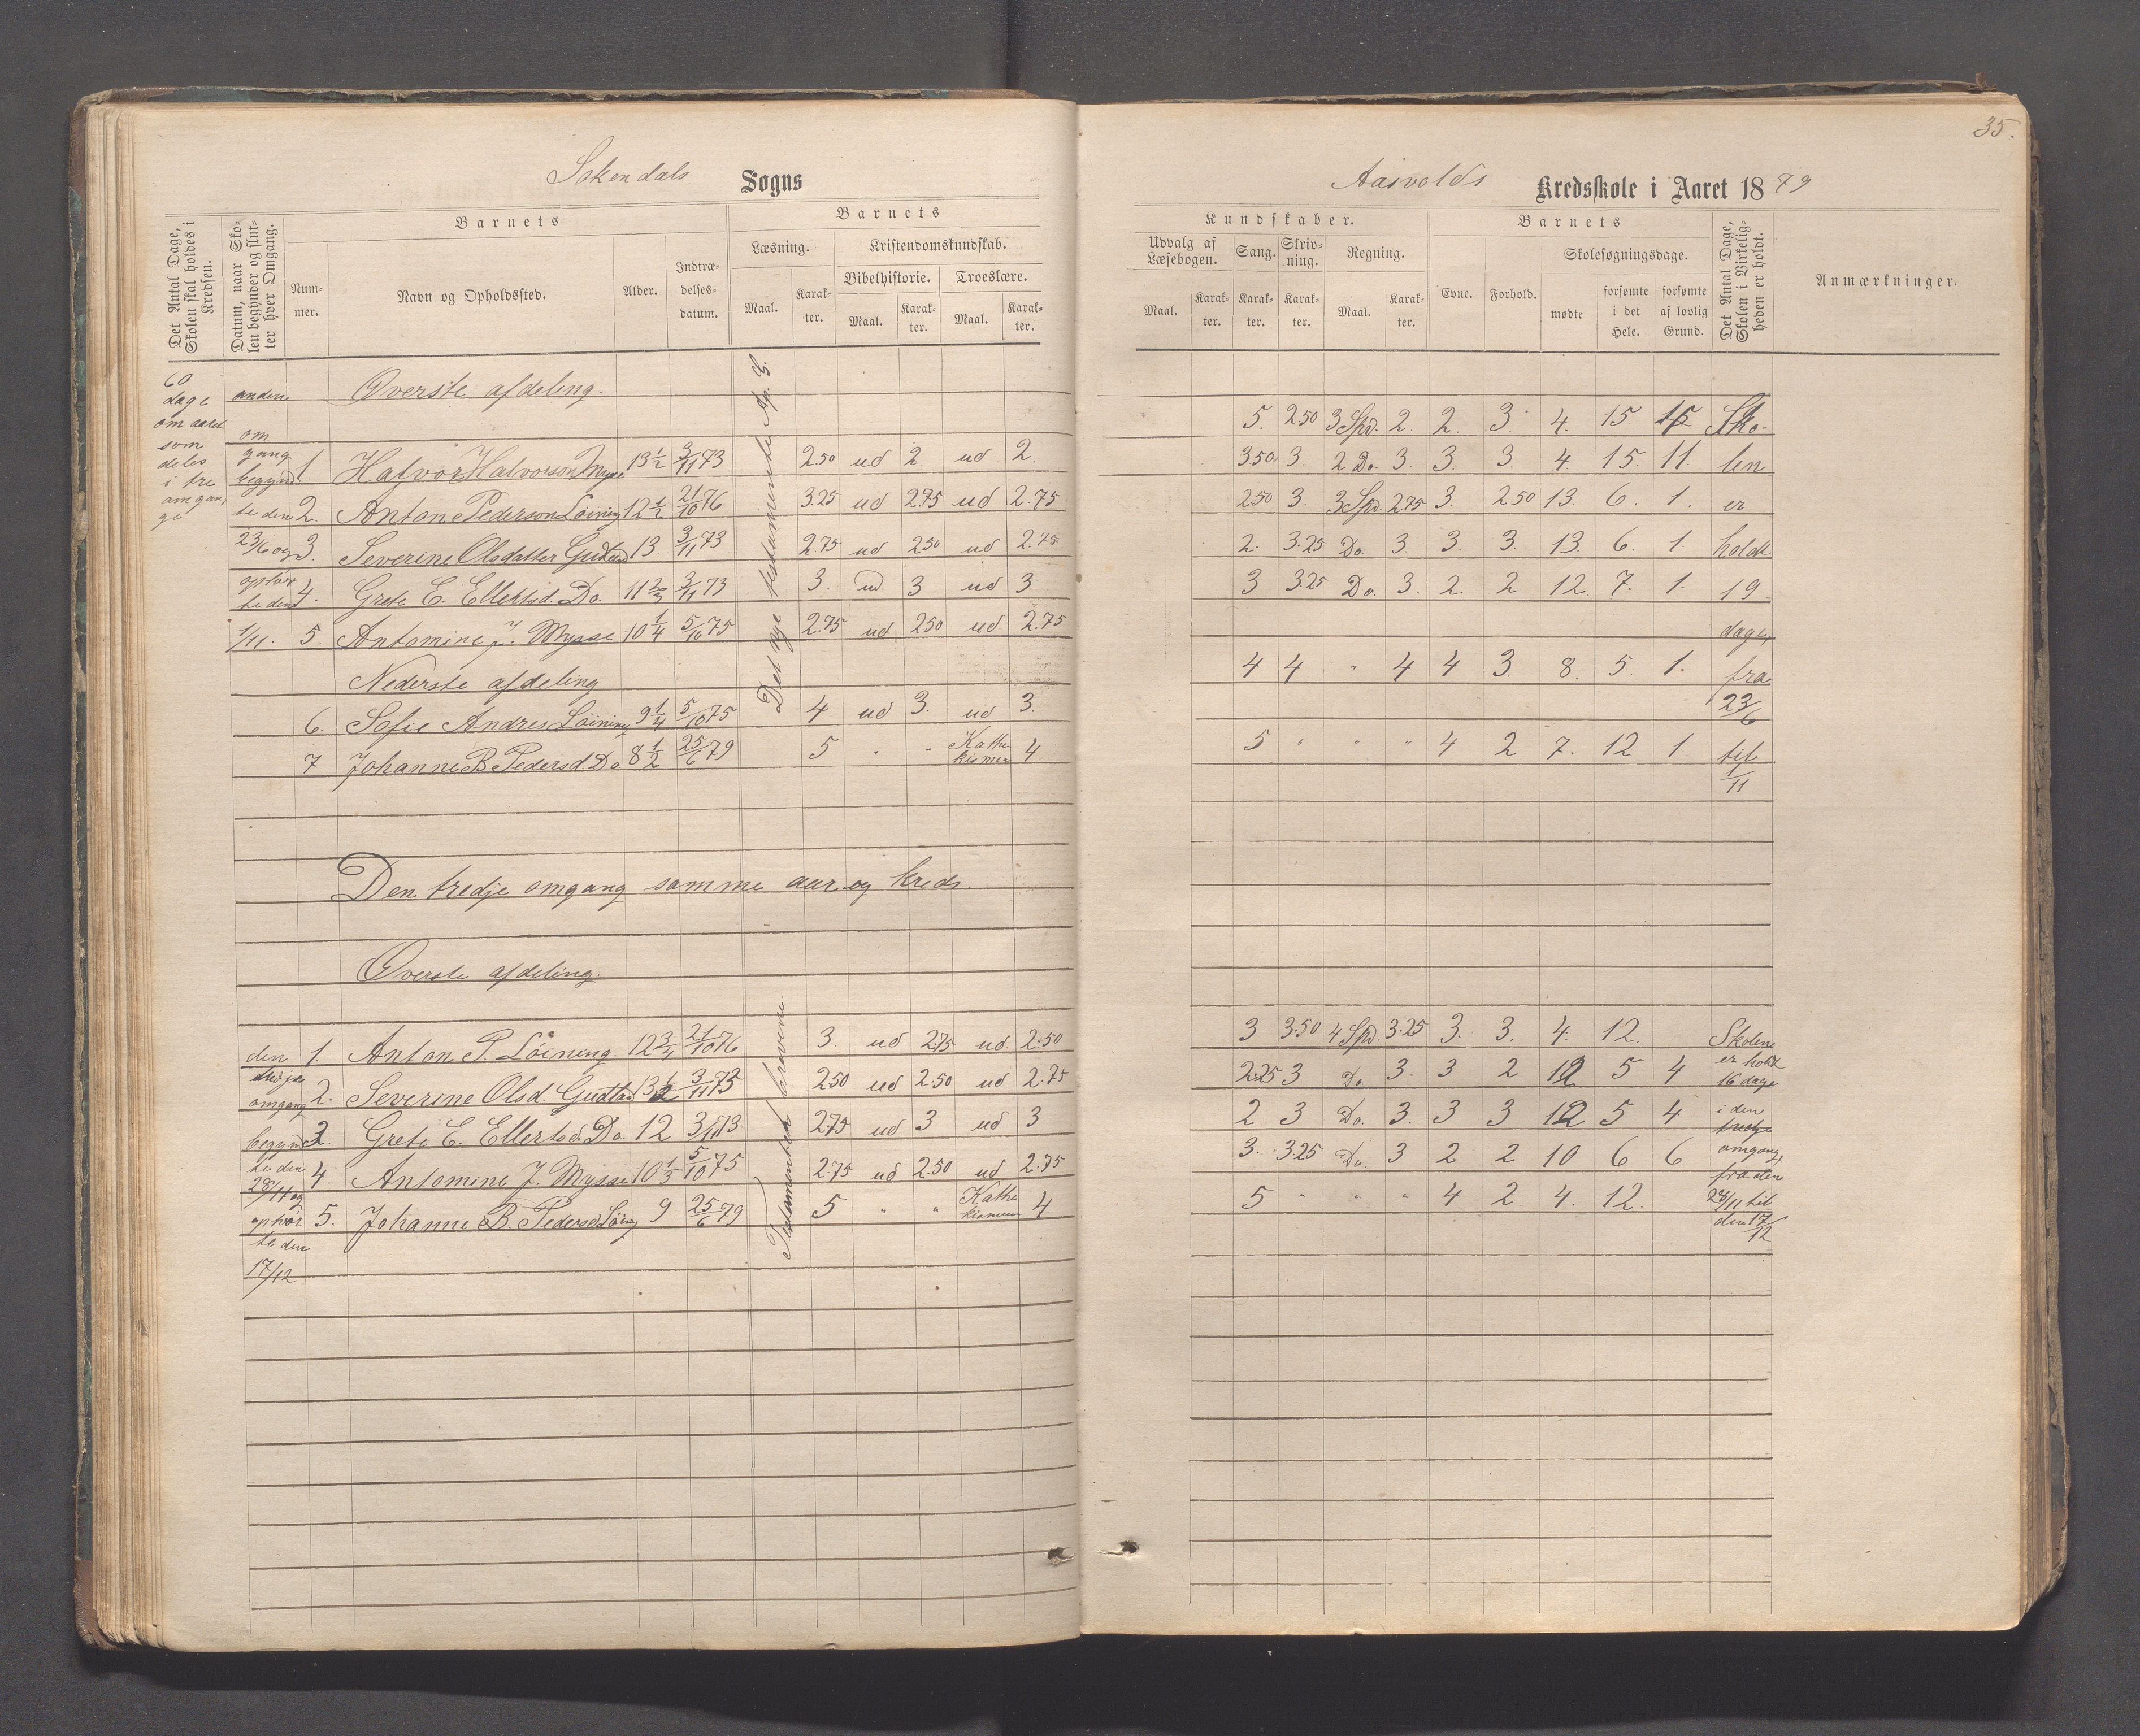 35.
Sokendals Sogns
Aasvolds Kredsskole i Aaret 1879
Det Antal Dage, Skolen skal holdes i Kredsen.
Datum, naar Skolen begynder og slutter hver Omgang.
Barnets
Nummer.
Navn og Opholdssted.
Alder.
Indtrædelsesdatum.
Barnets
Læsning.
Kristendomskundskab.
Bibelhistorie.
Troeslære.
Maal.
Karakter.
Maal.
Karakter.
Maal.
Karakter.
Kundskaber.
Udvalg af Læsebogen.
Sang.
Skrivning.
Regning.
Maal.
Karakter.
Karakter.
Karakter.
Maal.
Karakter.
Barnets
Evne.
Forhold.
Skolesøgningsdage.
mødte
forsømte i det Hele.
forsømte af lovlig Grund.
Det Antal Dage, Skolen i Virkeligheden er holdt.
Anmærkninger.
60 dage om aaret som deles i tre omgange
anden omgang begyndte den 23/6 og ophørte den 1/11.
Øverste afdeling.
Det nye testamente
1. Halvor Halvorson Mysse 13 1/2 3/11 73 2.50 ud 2. ud 2. 5. 2.50 3 Spd. 2. 2. 3. 4. 15 15
2. Anton Pederson Löining 12 1/2 21/10 76 3.25 ud 2.75 ud 2.75 3.50 3. 2 Do. 3. 3. 3. 4. 15. 11.
3. Severine Olsdatter Gudland 13. 3/11 73 2.75 ud 2.50 ud 2.75 2.50 3 3 Spd. 2.75 3. 2.50 13. 6. 1.
4. Grete E. Ellertsd. Do. 11 2/3 3/11 73 3. ud 3 ud 3 2. 3.25 Do. 3. 3. 3. 13. 6. 1.
5. Antomine J. Mysse 10 1/4 5/10 75 2.75 ud 2.50 ud 2.75 3 3.25 Do. 3. 2. 2 12 7. 1.
Nederste afdeling
6. Sofie Andres Löining 9 1/4 5/10 75 4 ud 3. ud 3. 4 4 " 4 4 3 8. 5. 1.
7 Johanne B. Pedersd. Do 8 1/2 25/6 79 5 " " Kathekismen 4 5 " " " 4 2 7. 12 1
Skolen er holdt 19 dage, fra 23/6 til 1/11
Den tredje omgang samme aar og kreds.
Øverste afdeling.
den tredje omgang begyndte den 28/11 og ophørte den 17/12
Testamentet
1. Anton P. Löining. 12 3/4 21/10 76 3. ud 2.75 ud 2.50 3 3.50 4 Spd. 3.25 3. 3. 4. 12.
2. Severine Olsd Gudland 13 1/2 3/11 73 2.50 ud 2.50 ud 2.75 2.25 3 Do 3. 3 2 12 5 4
3. Grete E. Ellertsd. Do. 12 3/11 73 2.75 ud 3 ud 3 2 3 Do. 3. 3 3 12 5 4
4. Antomine J. Mysse 10 1/3 5/10 75 2.75 ud 2.50 ud 2.75 3. 3.25 Do. 3 2 2 10 6 6
5. Johanne B. Pedersd Löining 9 25/6 79 5 " " Kathekismen 4 5 " " " 4 2 4. 12.
Skolen er holdt 16 dage i den tredje omgang, fra den 28/11 til den 17/12